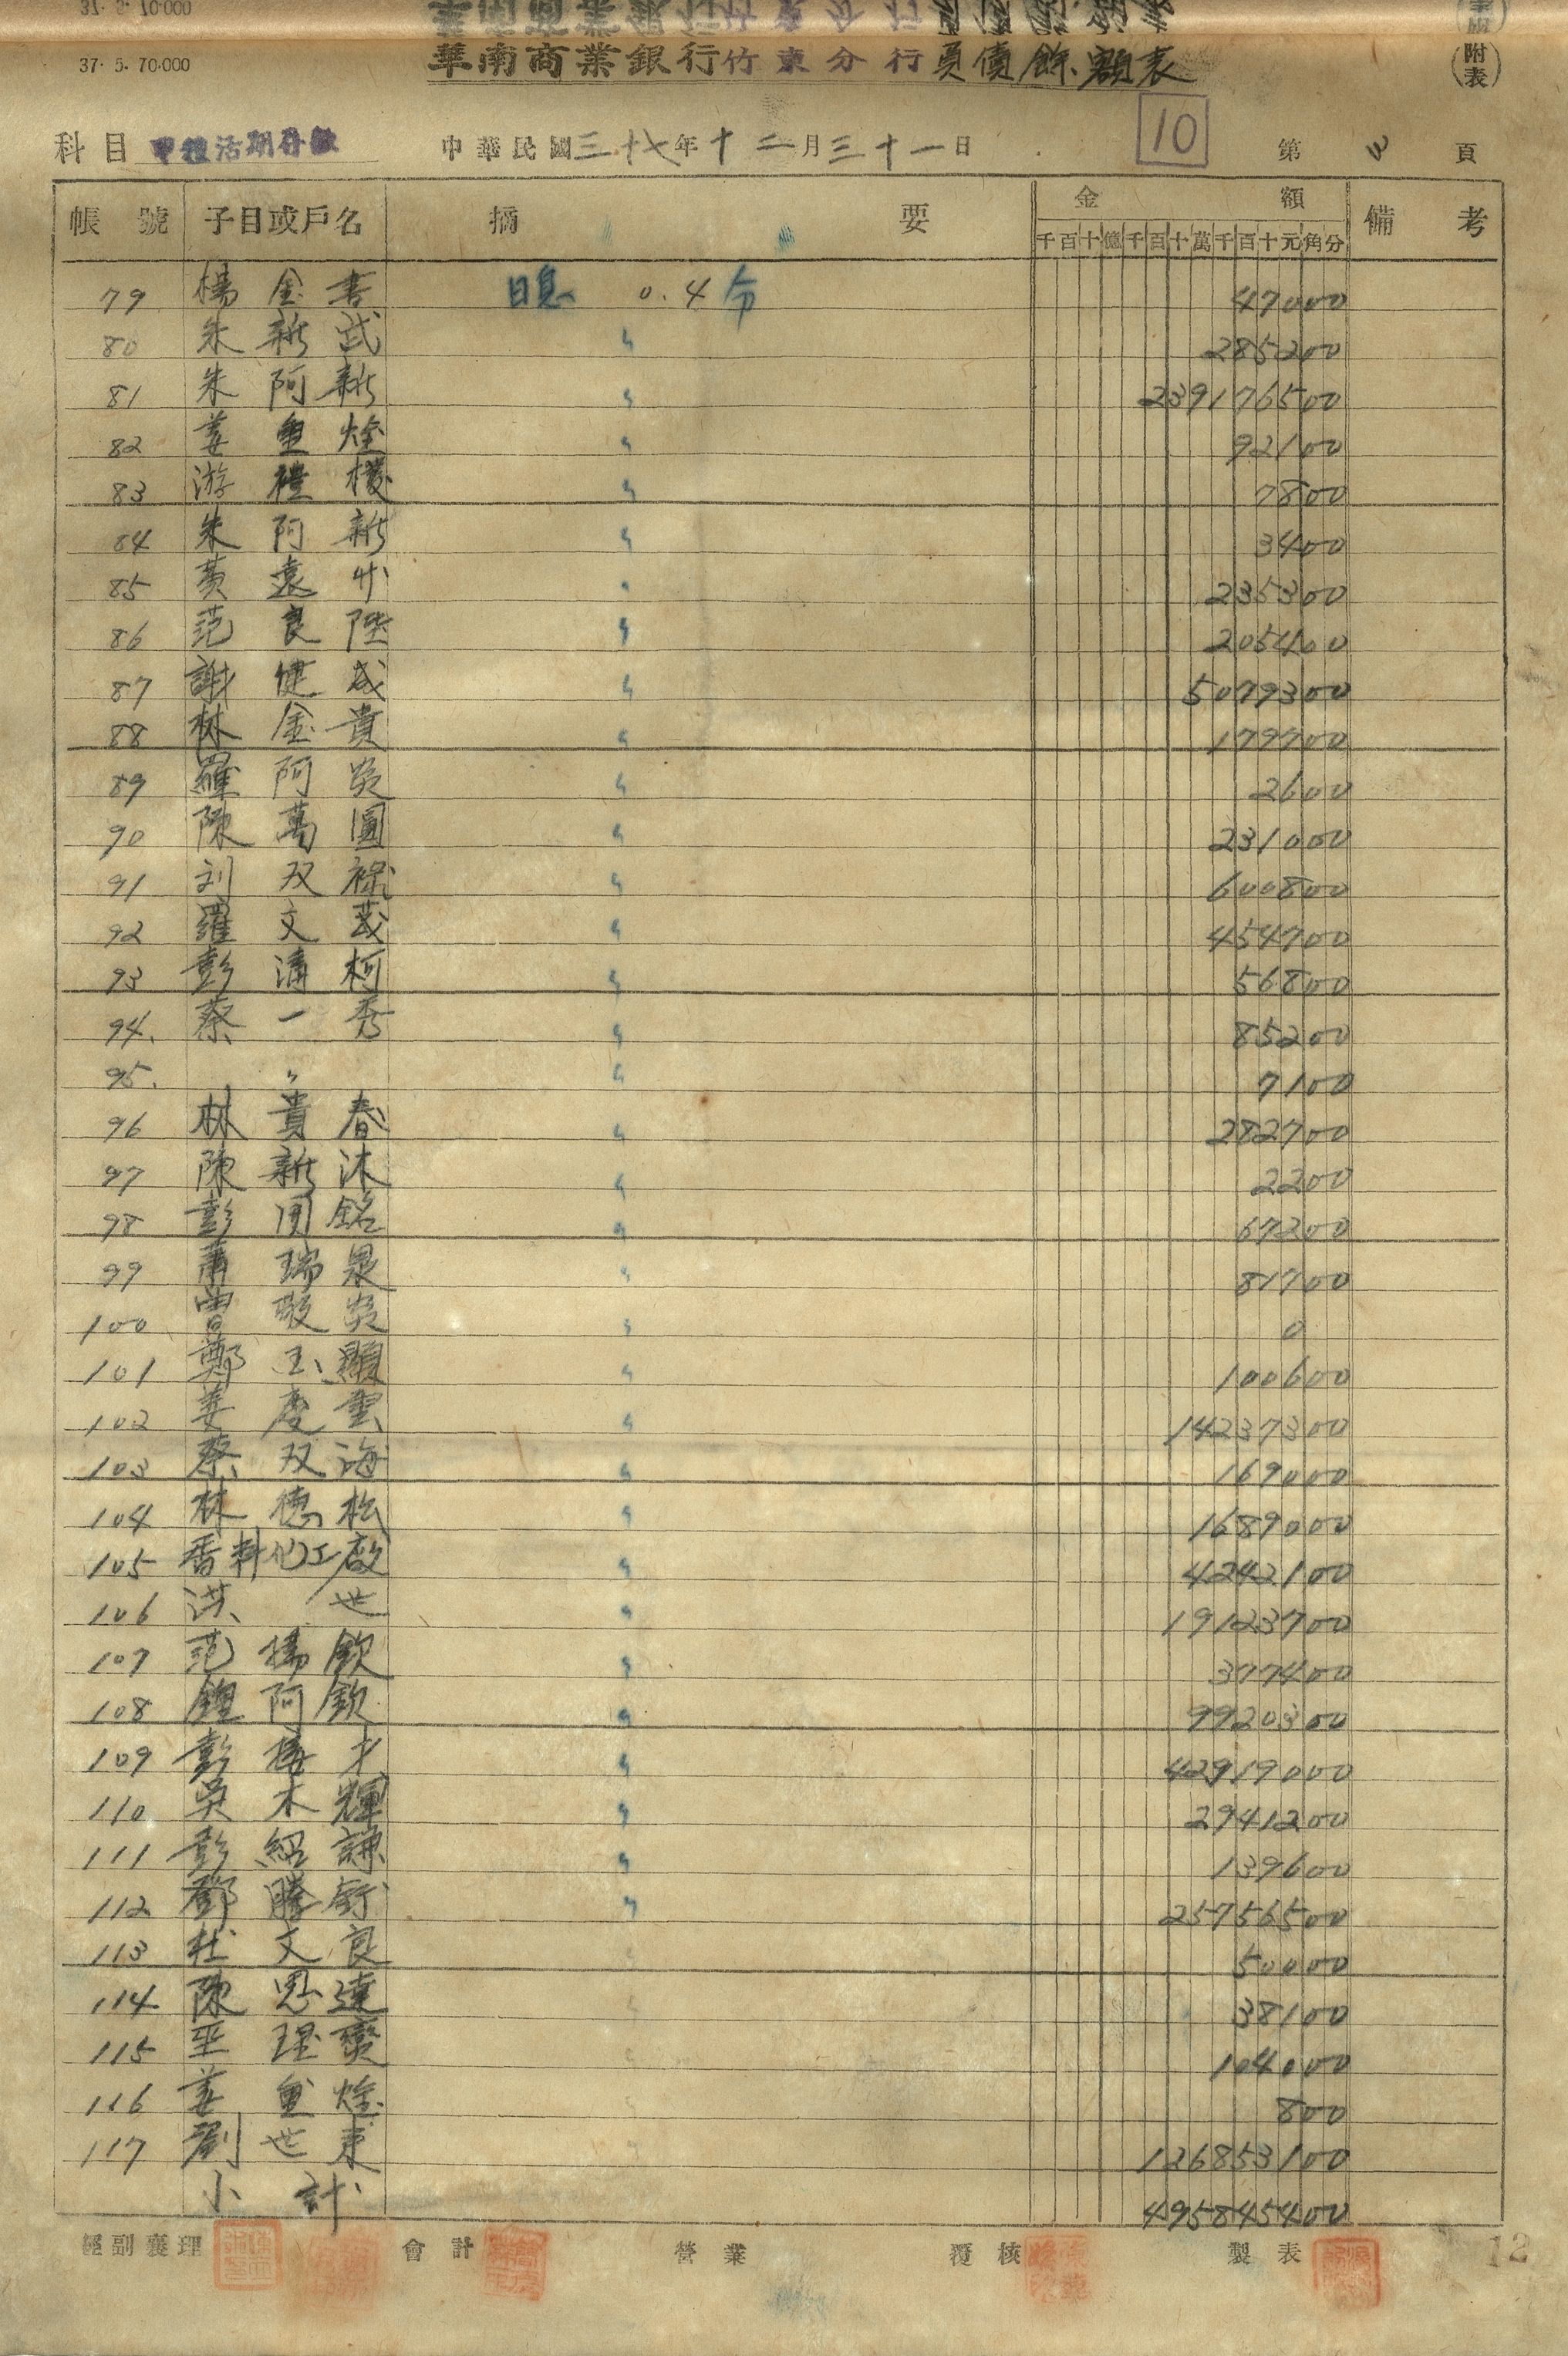 37. 5. 70.000
37. 5. 70.000
華南商業銀行竹東分行負債餘額表
(附表)
科目 甲種活期存款 中華民國三十七年十二月三十一日 10 第 3 頁
帳號 子目或戶名 摘要 金額 備考
千百十億千百十萬千百十元角分
79 楊金書 日息 0.4分 47000
80 朱新武 〃 285200
81 朱阿新 〃 239176500
82 姜重烇 〃 92100
83 游禮樑 〃 7800
84 朱阿新 〃 3400
85 黃遠 〃 235300
86 范良陞 〃 205400
87 謝健成 〃 5079300
88 林金貴 〃 179700
89 羅阿炎 〃 2600
90 陳萬圓 〃 231000
91 刘双祿 〃 600800
92 羅文 〃 454700
93 彭清柯 〃 56800
94. 蔡一秀 〃 85200
95. 〃 〃 7100
96 林貴春 〃 282700
97 陳新沐 〃 2200
98 彭開銘 〃 67200
99 蕭瑞泉 〃 81700
100 曾敬炎 〃 0
101 鄭玉顯 〃 100600
102 姜慶雲 〃 14237300
103 蔡双海 〃 169000
104 林德松 〃 1689000
105 香料化工廠 〃 4242100
106 洪世 〃 19123700
107 范揚欽 〃 377400
108 鍾阿欽 〃 9920300
109 彭梅才 〃 42919000
110 吳木輝 〃 2941200
111 彭紹謙 〃 139600
112 鄧騰釬 〃 25756500
113 杜文良 50000
114 陳恩達 38100
115 巫理爕 104000
116 姜重烇 800
117 劉世東 126853100
小計 495845400
經副襄理 會計 營業 覆核 製表
12